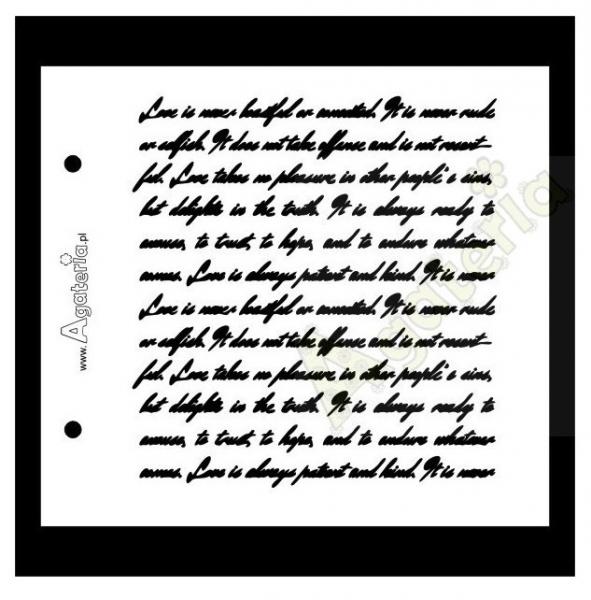 Love is never boastful or conceited. It is never rude
or selfish. It does not take offense and is not resent-
ful. Love takes no pleasure in other people's sins,
but delights in the truth. It is always ready to
excuse, to trust, to hope, and to endure whatever
comes. Love is always patient and kind. It is never
Love is never boastful or conceited. It is never rude
or selfish. It does not take offense and is not resent-
ful. Love takes no pleasure in other people's sins,
but delights in the truth. It is always ready to
excuse, to trust, to hope, and to endure whatever
comes. Love is always patient and kind. It is never
www.Agateria.pl
Agateria